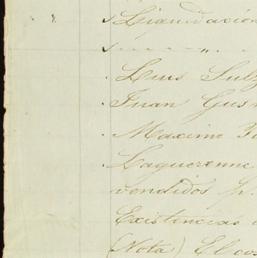 Liquidacion
" "
Luis Sulz
Juan Gus
Maxime
Laquerenne
vendidos p.
Existencias
(Nota) El cos